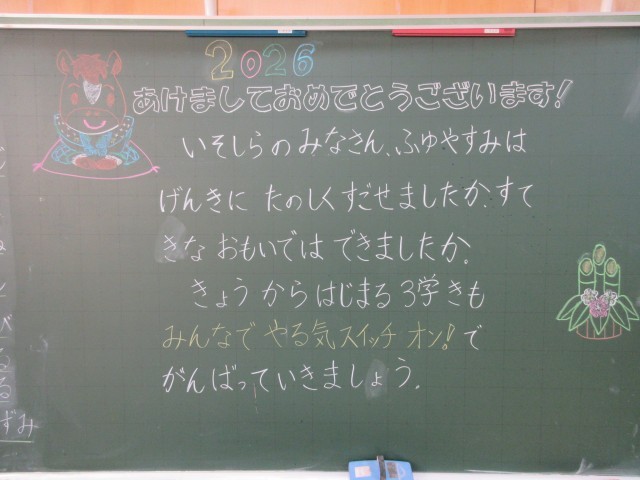 2026
あけましておめでとうございます!
いそしらのみなさん、ふゆやすみは
げんきに たのしくすごせましたか。すて
きな おもいでは できましたか。
きょう からはじまる 3学きも
みんなで やる気スイッチ オン!で
がんばっていきましょう。
ずみ